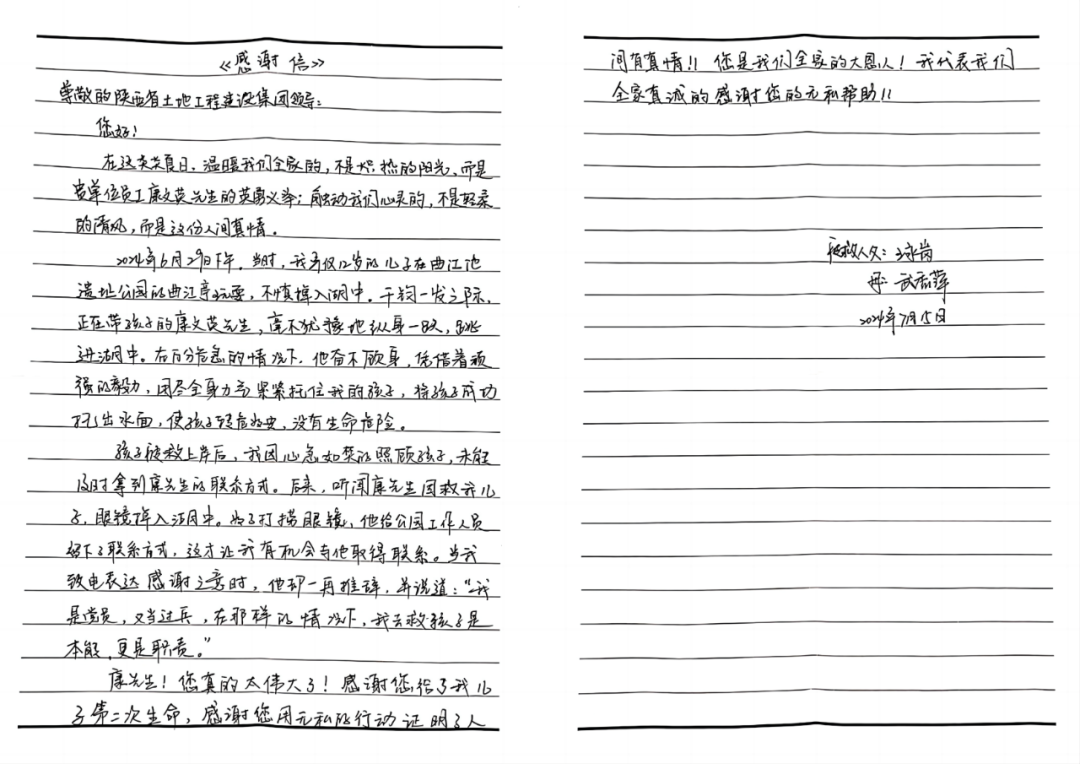 《感谢信》
尊敬的陕西省土地工程建设集团领导：
您好！
在这炎炎夏日，温暖我们全家的，不是炽热的阳光，而是
贵单位员工康文英先生的英勇义举；触动我们心灵的，不是轻柔
的清风，而是这份人间真情。
2024年6月29日下午，当时，我弟仅12岁的儿子在曲江池
遗址公园的曲江亭玩耍，不慎掉入湖中。千钧一发之际，
正在带孩子的康文英先生，毫不犹豫地纵身一跃，跳
进湖中。在万分危急的情况下，他奋不顾身，凭借着顽
强的毅力，用尽全身力气紧紧托住我的孩子，将孩子成功
托出水面，使孩子转危为安，没有生命危险。
孩子被救上岸后，我因心急如焚的照顾孩子，未能
及时拿到康先生的联系方式。后来，听闻康先生因救我儿
子，眼镜掉入湖中。为了打捞眼镜，他给公园工作人员
留下了联系方式，这才让我有机会与他取得联系。当我
致电表达感谢之意时，他却一再推辞，并说道：“我
是党员，又当过兵，在那样的情况下，我去救孩子是
本能，更是职责。”
康先生！您真的太伟大了！感谢您给了我儿
子第二次生命，感谢您用无私的行动证明了人
间有真情！！您是我们全家的大恩人！我代表我们
全家真诚的感谢您的无私帮助！！
被救人父：
母：武
2024年7月15日